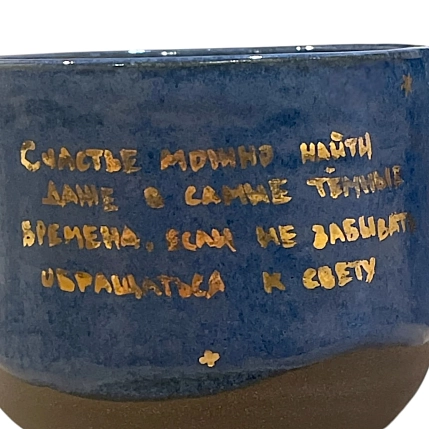 Счастье можно найти
даже в самые тёмные
времена, если не забывать
обращаться к свету